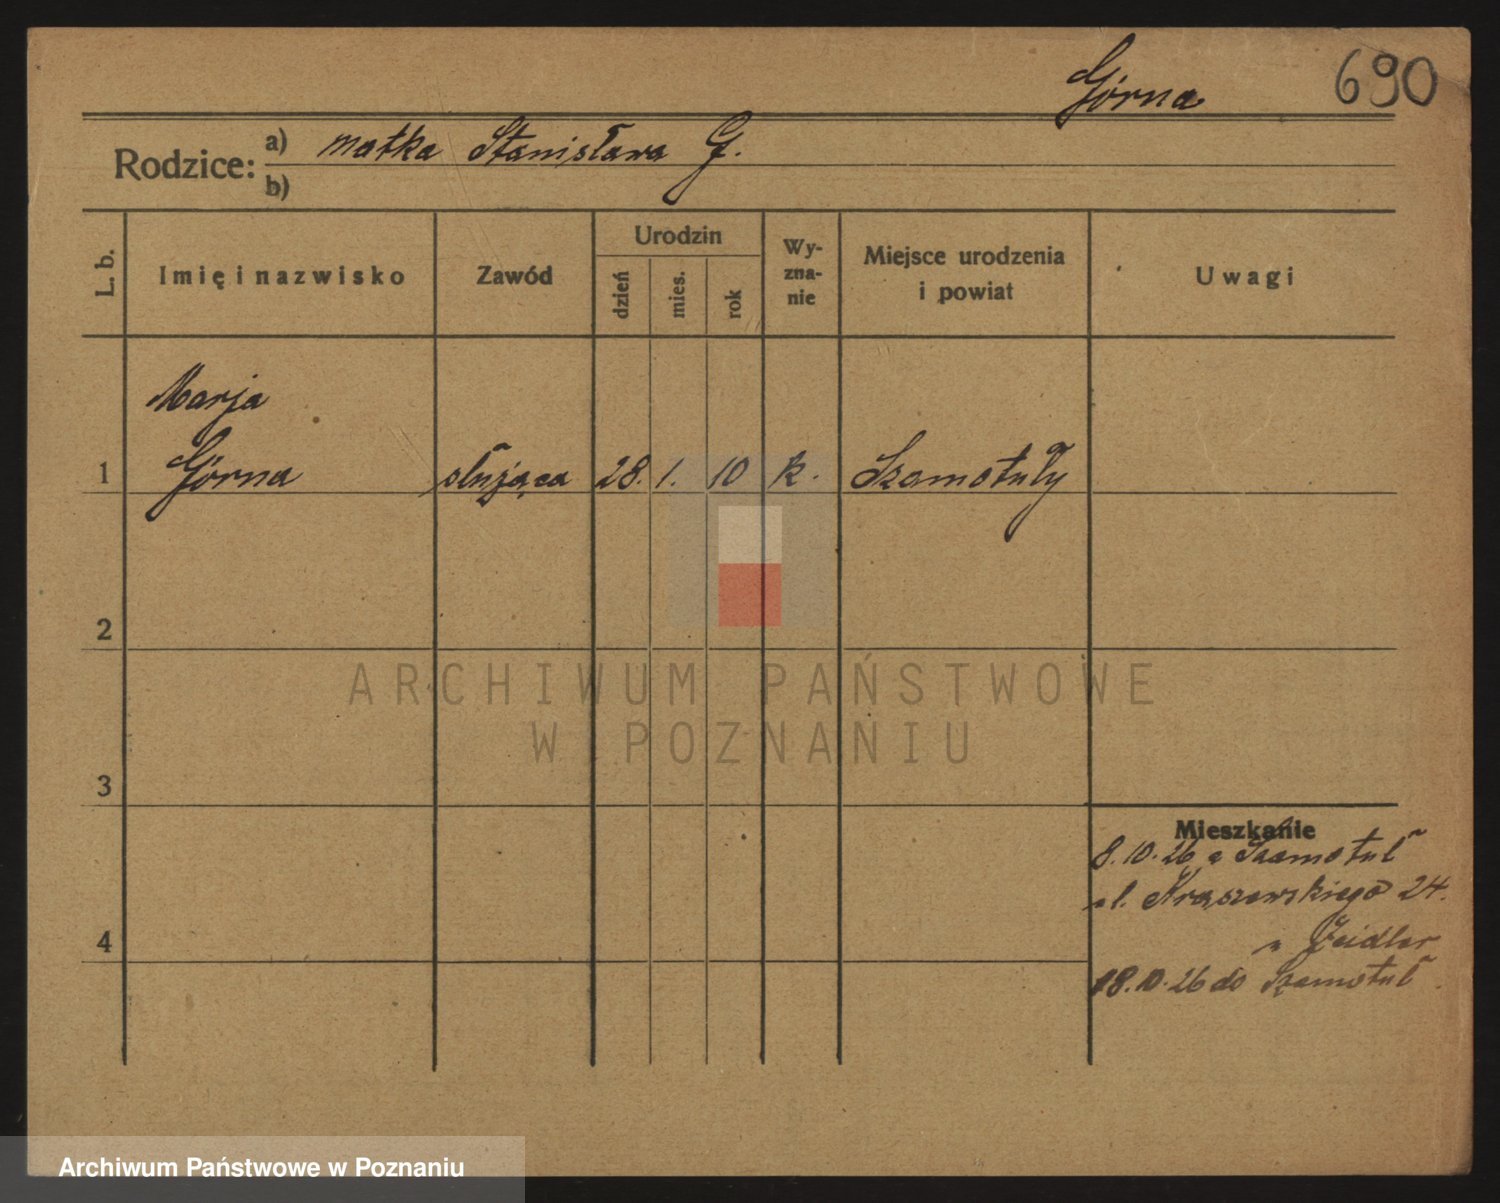 Górna 690
Rodzice: a) matka Stanisława G.
b)
L. b. Imię i nazwisko Zawód Urodzin dzień mies. rok Wy-zna-nie Miejsce urodzenia i powiat Uwagi
Marja
1 Górna służąca 28. 1. 10 k. Szamotuły
2
ARCHIWUM PAŃSTWOWE
W POZNANIU
3
Mieszkanie
8.10.26 z Szamotuł
ul. Kraszewskiego 24.
4
u Zeidler
18.10.26 do Szamotuł
Archiwum Państwowe w Poznaniu